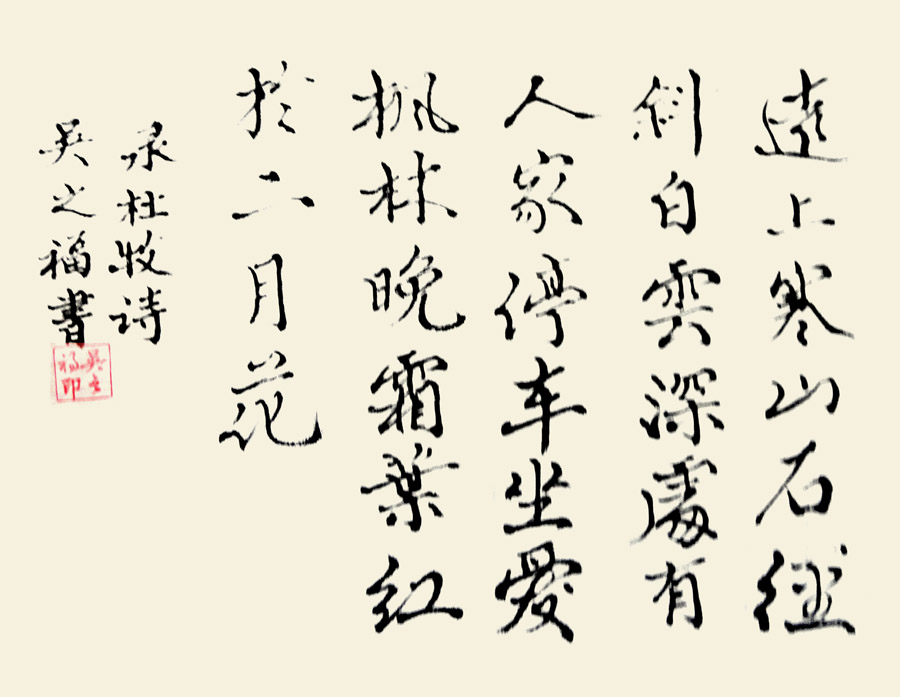 遠上寒山石徑
斜白雲深處有
人家停车坐愛
枫林晚霜葉红
於二月花
录杜牧诗
吴之福書
吴之福印